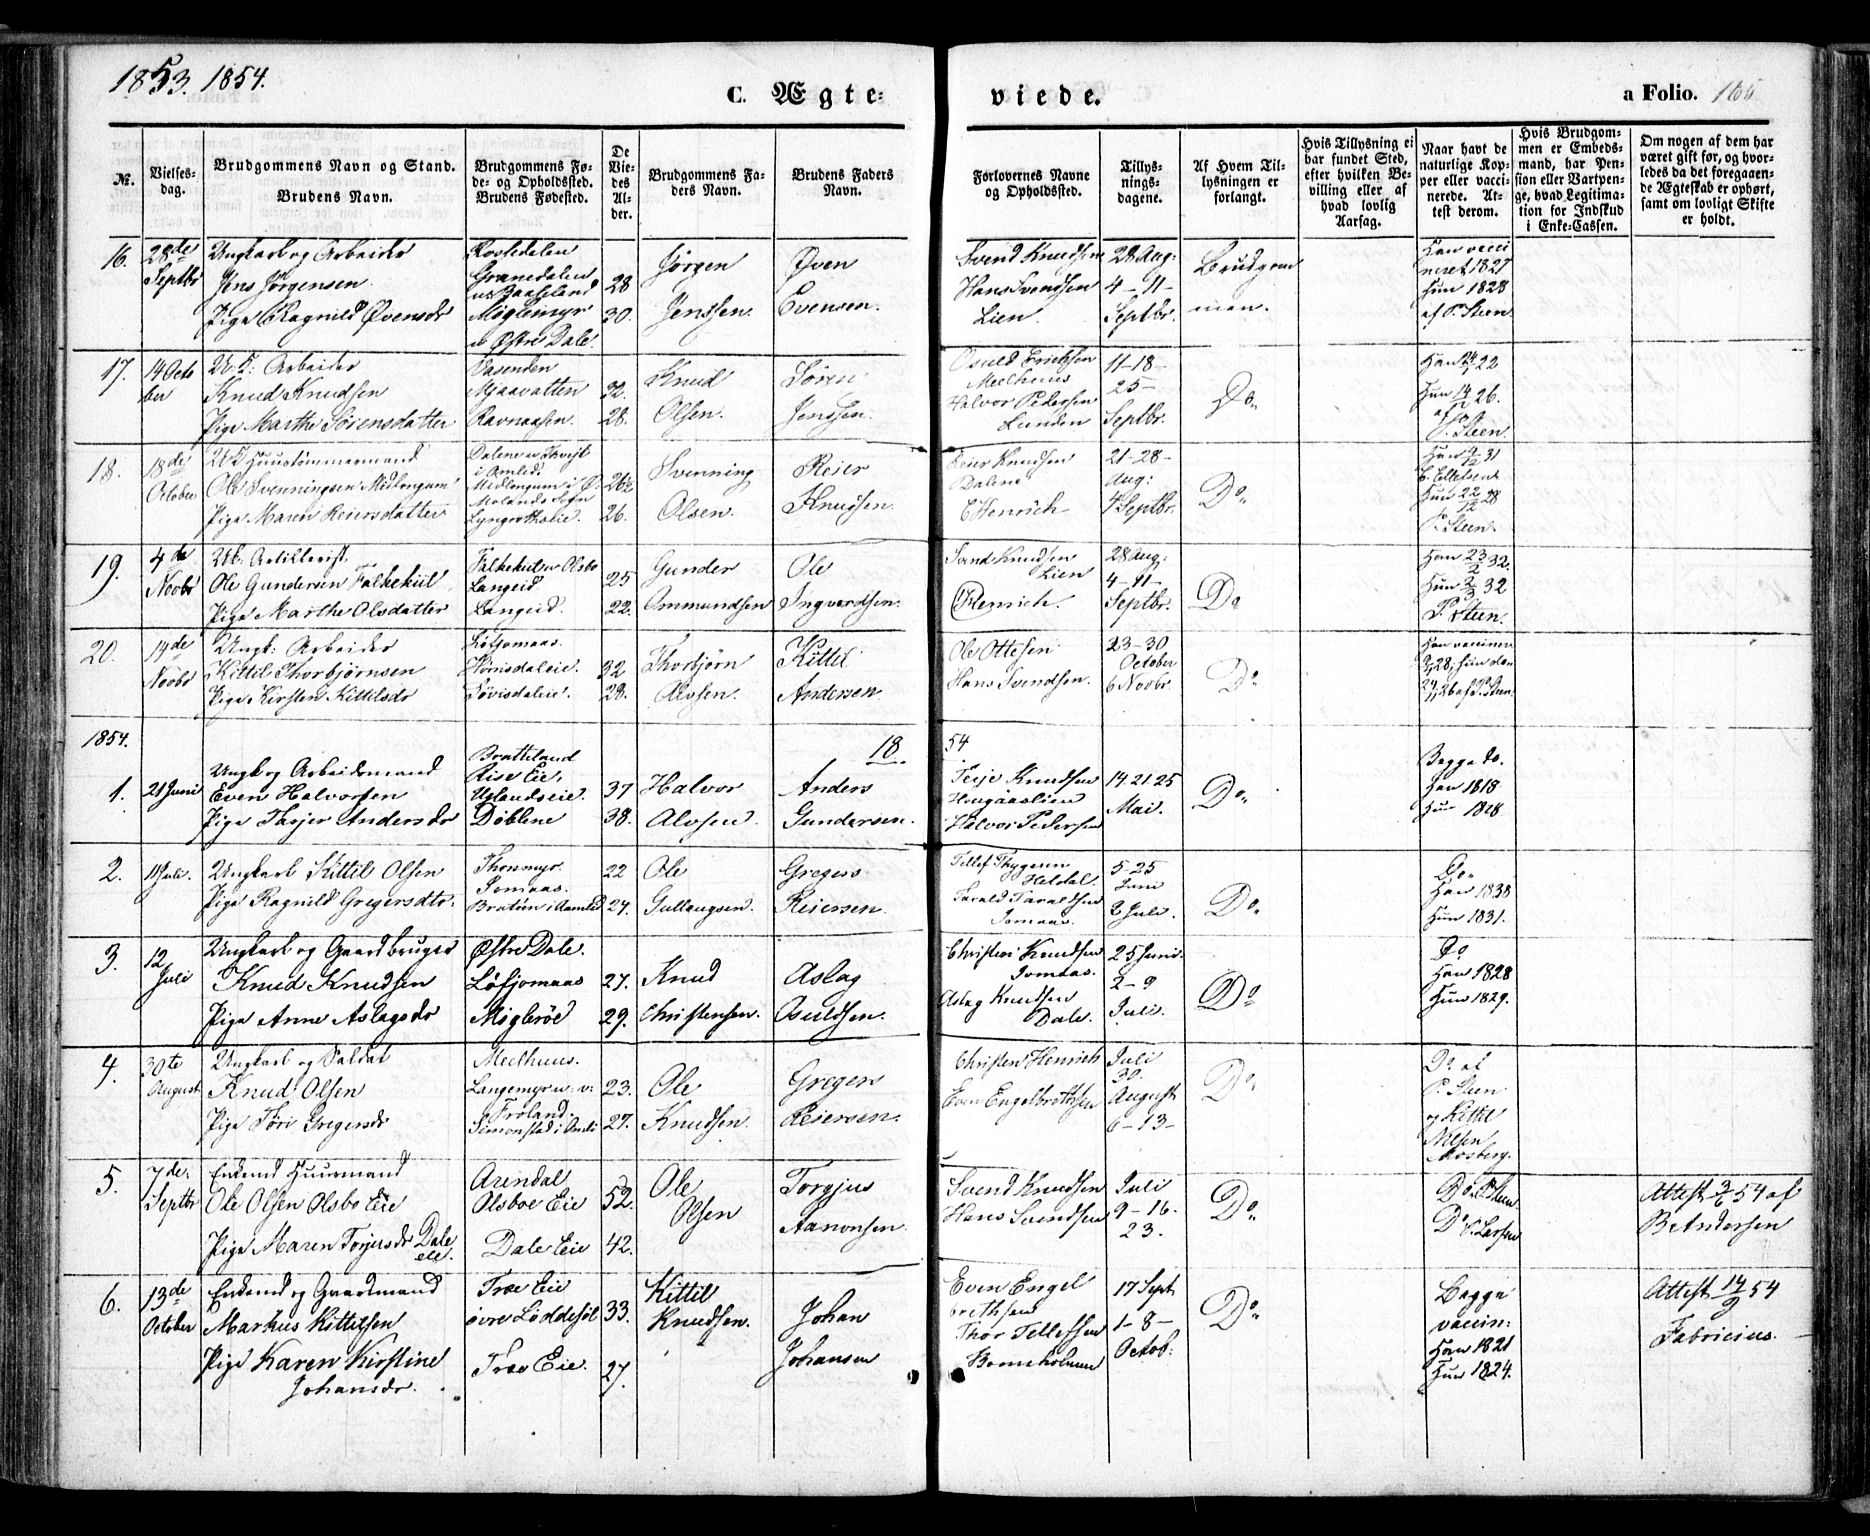 1853. 1854.
C. Ægte-
viede.
a Folio.
No.
Vielsesdag.
Brudgommens Navn og Stand.
Brudens Navn.
Brudgommens Føde- og Opholdssted.
Brudens Fødested.
De Viedes Alder.
Brudgommens Faders Navn.
Brudens Faders Navn.
Forlovernes Navne og Opholdssted.
Tillysningsdagene.
Af Hvem Tillysningen er forlangt.
Hvis Tillysning ei har fundet Sted, efter hvilken Bevilling eller af hvad lovlig Aarsag.
Naar havt de naturlige Kopper eller vaccinerede. Attest derom.
Hvis Brudgommen er Embedsmand, har Pension eller Vartpenge, hvad Legitimation for Indskud i Enke-Cassen.
Om nogen af dem har været gift før, og hvorledes da det foregaaende Ægteskab er ophørt, samt om lovligt Skifte er holdt.
16. 28de Septbr
Ungkarl og Arbeider
Jens Jörgensen
Pige Ragnild Øvensdr
28
30.
Jörgen Jensen.
Øven Evensen.
Svend Knudsen
Hans Svendsen Lien.
28 Aug: 4-11- Septbr.
Brudgommen.
Han vaccineret 1827
hun 1828
af P. Steen
17. 14 October
U.K. Arbeider
Knud Knudsen
Pige Marthe Sörensdatter
Vasenden
Mjaavatten
Ravnaasen.
32.
28.
Knud Olsen.
Sören Jenssen.
Osuld Ericksen Meelhuus
Halvor Pedersen Lunden
11-18-25- Septbr.
Do.
Han 22
Hun 26.
af P. Steen
18. 18de October
UK Huustömmermand
Ole Svenningsen Midlongum
Pige Maren Reiersdatter
26½
26.
Svenning Olsen.
Reier Knudsen.
Reier Knudsen Dalene
C Henrich
21-28- Aug: 4 Septbr.
Do.
Han 31
E. Ellefsen
Hun 22/12 28
P. Steen.
19. 4de Novbr
Uk. Artillerist.
Ole Gundersen Falkekiil
Pige Marthe Olsdatter
Langeid
Langeid.
25
22.
Gunder Ommundsen
Ole Ingvardsen.
Svend Knudsen Lien
C Henrich.
28 Aug: 4-11- Septbr.
Do
Han 23/2 32.
Hun 2/3 32
P. Steen.
20. 14de Novbr
Ungk: Arbeider
Kittil Thorbjörnsen
Pige Kirsten Kittilsdr
Löfjomaas.
32
28.
Thorbjörn Alvsen.
Kittil Andersen
Ole Ottesen
Hans Svendsen.
23-30 October
6 Novbr
Do
1854.
1854
1. 21 Juni
Ungk og Arbeidsmand
Even Halvorsen
Pige Tarjer Andersdr
Bratteland
Rise Eie,
Uglandseie.
Döblene
37
38.
Halvor Alvsen.
Anders Gundersen.
Terje Knudsen
Halvor Pedersen
14 21 25 Mai.
Do.
Begge do.
Han 1818
Hun 1828
2. 11 Juli.
Ungkarl Kittil Olsen
Pige Ragnild Gregersdtr.
Jomaas.
22
24.
Ole Gullaugsen.
Gregers Reiersen
Tellef Thygesen Heldal.
Tarald Taraldsen Jomaas.
5-25 Juni
2 Juli.
Do.
Do.
Han 1838
Hun 1831.
3. 12 Juli
Ungkarl og Gaardbruger
Knud Knudsen
Pige Anne Aslagsdr
Østre Dale.
Löfjomaas
Migleröe
27.
29.
Knud Christensen.
Aslag Osuldsen.
Christen Knudsen Jomaas.
Aslag Knudsen Dale.
25 Juni.
2-9 Juli.
Do
Do
Han 1828
Hun 1829.
4. 30te August
Ungkarl og Soldat
Knud Olsen
Pige Töri Gregersdr
Meelhuus.
Froland.
Simonstad i Amli
23.
27.
Ole Knudsen
Gregers Reiersen.
Christen Henrich
Even Engelbrethsen
Juli 30.
August 6-13-
Do
Do af P. Steen
og Kittil Nilsen Mosberg.
5. 7de Septbr
Enkemd Huusmand
Ole Olsen Olsbo Eie
Pige Maren Torjusdr Dale eie.
Arendal
Olsboe Eie
Dale Eie
52.
42.
Ole Olsen
Torgjus Aanonsen.
Svend Knudsen
Hans Svendsen
Juli 9-16. 23.
Do.
Do. P. Steen
Do. Larsen
Attest 3/6 54 af
B. Andersen
6. 13de October
Enkemd og Gaardmand
Markus Kittelsen
Pige Karen Kirstine Johansdr.
Træ Eie
övre Löddesöl
Træ Eie.
33.
27.
Kittil Knudsen.
Johan Johansen
Even Engelbrethsen
Thor Tellefsen
Bomsholmen
17 Sept
1-8- Octob:
Do.
Begge vaccin:
Han 1821
Hun 1824.
Attest 14/9 54
Fabricius.